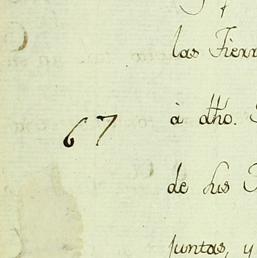 las Tierr
67
à dho.
de sus
juntas, y